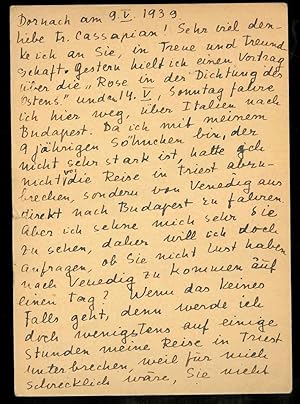 Dornach am 9. V. 1939
liebe Fr. Cassapian! Sehr viel den-
ke ich an Sie, in Treue und Freund
schaft. Gestern hielt ich einen Vortrag
über die „Rose in der Dichtung des
Ostens" und 14. V, Sonntag fahre
ich hier weg, über Italien nach
Budapest. Da ich mit meinem
9 jährigen Söhnchen bin, der
nicht sehr stark ist, hatte ich
nicht vor die Reise in Triest abzu-
brechen, sondern von Venedig aus
direkt nach Budapest zu fahren.
Aber ich sehne mich sehr Sie
zu sehen, daher will ich doch
anfragen, ob Sie nicht Lust haben
nach Venedig zu kommen auf
einen Tag? Wenn das keines
Falls geht, dann werde ich
doch wenigstens auf einige
Stunden meine Reise in Triest
unterbrechen, weil für mich
schrecklich wäre, Sie nicht